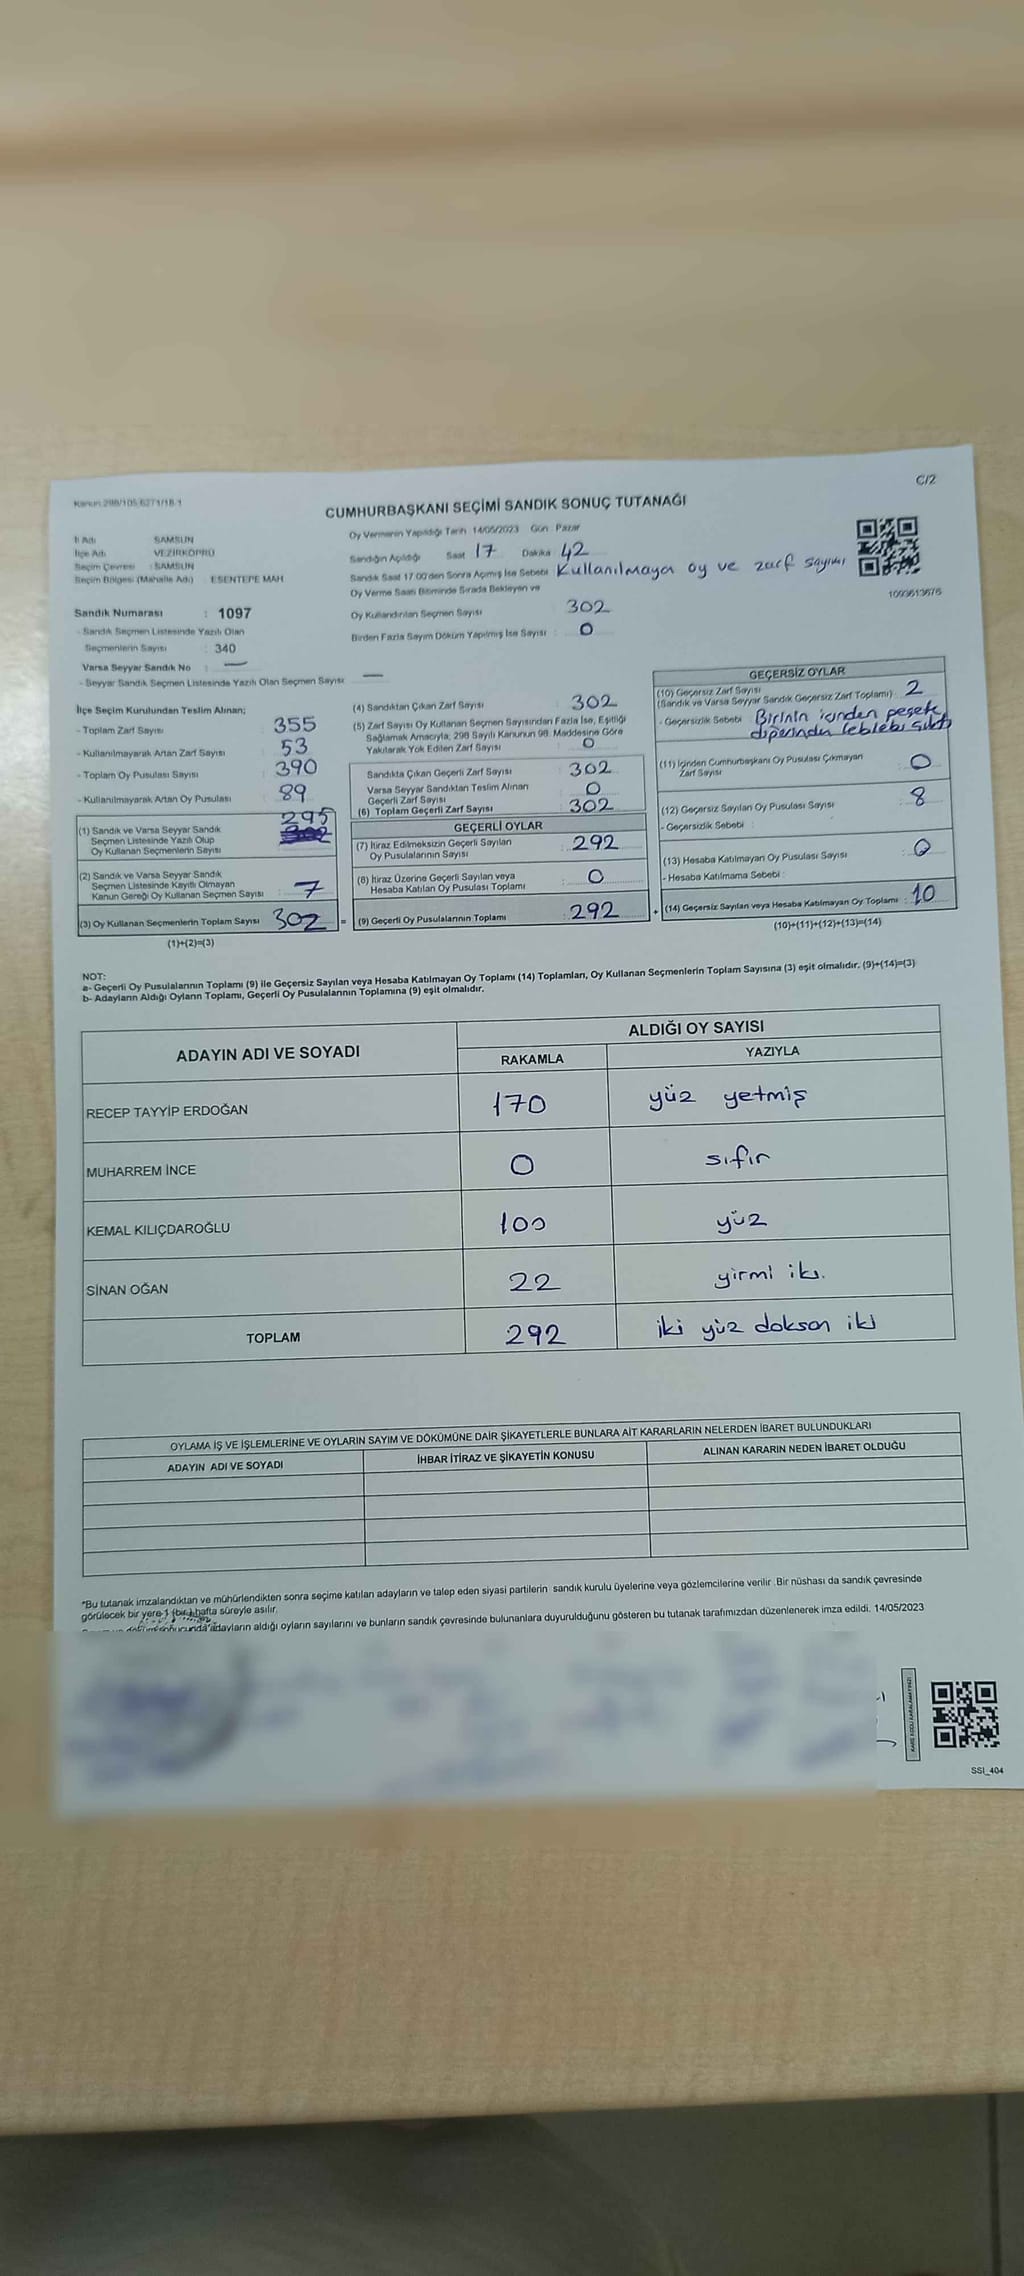 Kanun:298/105,6271/18-1
C/2
CUMHURBAŞKANI SEÇİMİ SANDIK SONUÇ TUTANAĞI
İl Adı : SAMSUN
İlçe Adı : VEZİRKÖPRÜ
Seçim Çevresi : SAMSUN
Seçim Bölgesi (Mahalle Adı) : ESENTEPE MAH
Sandık Numarası : 1097
- Sandık Seçmen Listesinde Yazılı Olan
Seçmenlerin Sayısı : 340
Varsa Seyyar Sandık No : —
- Seyyar Sandık Seçmen Listesinde Yazılı Olan Seçmen Sayısı: —
Oy Vermenin Yapıldığı Tarih 14/05/2023 Gün Pazar
Sandığın Açıldığı Saat 17 Dakika 42
Sandık Saat 17:00'den Sonra Açımış İse Sebebi Kullanılmayan oy ve zarf sayımı
Oy Verme Saati Bitiminde Sırada Bekleyen ve
Oy Kullandırılan Seçmen Sayısı 302
Birden Fazla Sayım Döküm Yapılmış İse Sayısı : 0
1093613676
İlçe Seçim Kurulundan Teslim Alınan;
- Toplam Zarf Sayısı : 355
- Kullanılmayarak Artan Zarf Sayısı : 53
- Toplam Oy Pusulası Sayısı : 390
- Kullanılmayarak Artan Oy Pusulası : 89
295
(1) Sandık ve Varsa Seyyar Sandık
Seçmen Listesinde Yazılı Olup
Oy Kullanan Seçmenlerin Sayısı
(2) Sandık ve Varsa Seyyar Sandık
Seçmen Listesinde Kayıtlı Olmayan
Kanun Gereği Oy Kullanan Seçmen Sayısı : 7
(3) Oy Kullanan Seçmenlerin Toplam Sayısı 302 =
(1)+(2)=(3)
(4) Sandıktan Çıkan Zarf Sayısı : 302
(5) Zarf Sayısı Oy Kullanan Seçmen Sayısından Fazla İse, Eşitliği
Sağlamak Amacıyla; 298 Sayılı Kanunun 98. Maddesine Göre
Yakılarak Yok Edilen Zarf Sayısı : 0
Sandıkta Çıkan Geçerli Zarf Sayısı : 302
Varsa Seyyar Sandıktan Teslim Alınan
Geçerli Zarf Sayısı : 0
(6) Toplam Geçerli Zarf Sayısı : 302
GEÇERLİ OYLAR
(7) İtiraz Edilmeksizin Geçerli Sayılan
Oy Pusulalarının Sayısı : 292
(8) İtiraz Üzerine Geçerli Sayılan veya
Hesaba Katılan Oy Pusulası Toplamı : 0
(9) Geçerli Oy Pusulalarının Toplamı : 292 +
GEÇERSİZ OYLAR
(10) Geçersiz Zarf Sayısı
(Sandık ve Varsa Seyyar Sandık Geçersiz Zarf Toplamı) : 2
- Geçersizlik Sebebi : Birinin içinden peçete
diğerinden leblebi çıktı
(11) İçinden Cumhurbaşkanı Oy Pusulası Çıkmayan
Zarf Sayısı : 0
(12) Geçersiz Sayılan Oy Pusulası Sayısı : 8
- Geçersizlik Sebebi :
(13) Hesaba Katılmayan Oy Pusulası Sayısı : 0
- Hesaba Katılmama Sebebi :
(14) Geçersiz Sayılan veya Hesaba Katılmayan Oy Toplamı : 10
(10)+(11)+(12)+(13)=(14)
NOT:
a- Geçerli Oy Pusulalarının Toplamı (9) ile Geçersiz Sayılan veya Hesaba Katılmayan Oy Toplamı (14) Toplamları, Oy Kullanan Seçmenlerin Toplam Sayısına (3) eşit olmalıdır. (9)+(14)=(3)
b- Adayların Aldığı Oyların Toplamı, Geçerli Oy Pusulalarının Toplamına (9) eşit olmalıdır.
ADAYIN ADI VE SOYADI
ALDIĞI OY SAYISI
RAKAMLA YAZIYLA
RECEP TAYYİP ERDOĞAN 170 yüz yetmiş
MUHARREM İNCE 0 sıfır
KEMAL KILIÇDAROĞLU 100 yüz
SİNAN OĞAN 22 yirmi iki.
TOPLAM 292 iki yüz doksan iki
OYLAMA İŞ VE İŞLEMLERİNE VE OYLARIN SAYIM VE DÖKÜMÜNE DAİR ŞİKAYETLERLE BUNLARA AİT KARARLARIN NELERDEN İBARET BULUNDUKLARI
ADAYIN ADI VE SOYADI İHBAR İTİRAZ VE ŞİKAYETİN KONUSU ALINAN KARARIN NEDEN İBARET OLDUĞU
*Bu tutanak imzalandıktan ve mühürlendikten sonra seçime katılan adayların ve talep eden siyasi partilerin sandık kurulu üyelerine veya gözlemcilerine verilir. Bir nüshası da sandık çevresinde
görülecek bir yere 1 (bir) hafta süreyle asılır.
adayların aldığı oyların sayılarını ve bunların sandık çevresinde bulunanlara duyurulduğunu gösteren bu tutanak tarafımızdan düzenlenerek imza edildi. 14/05/2023
SSI_404